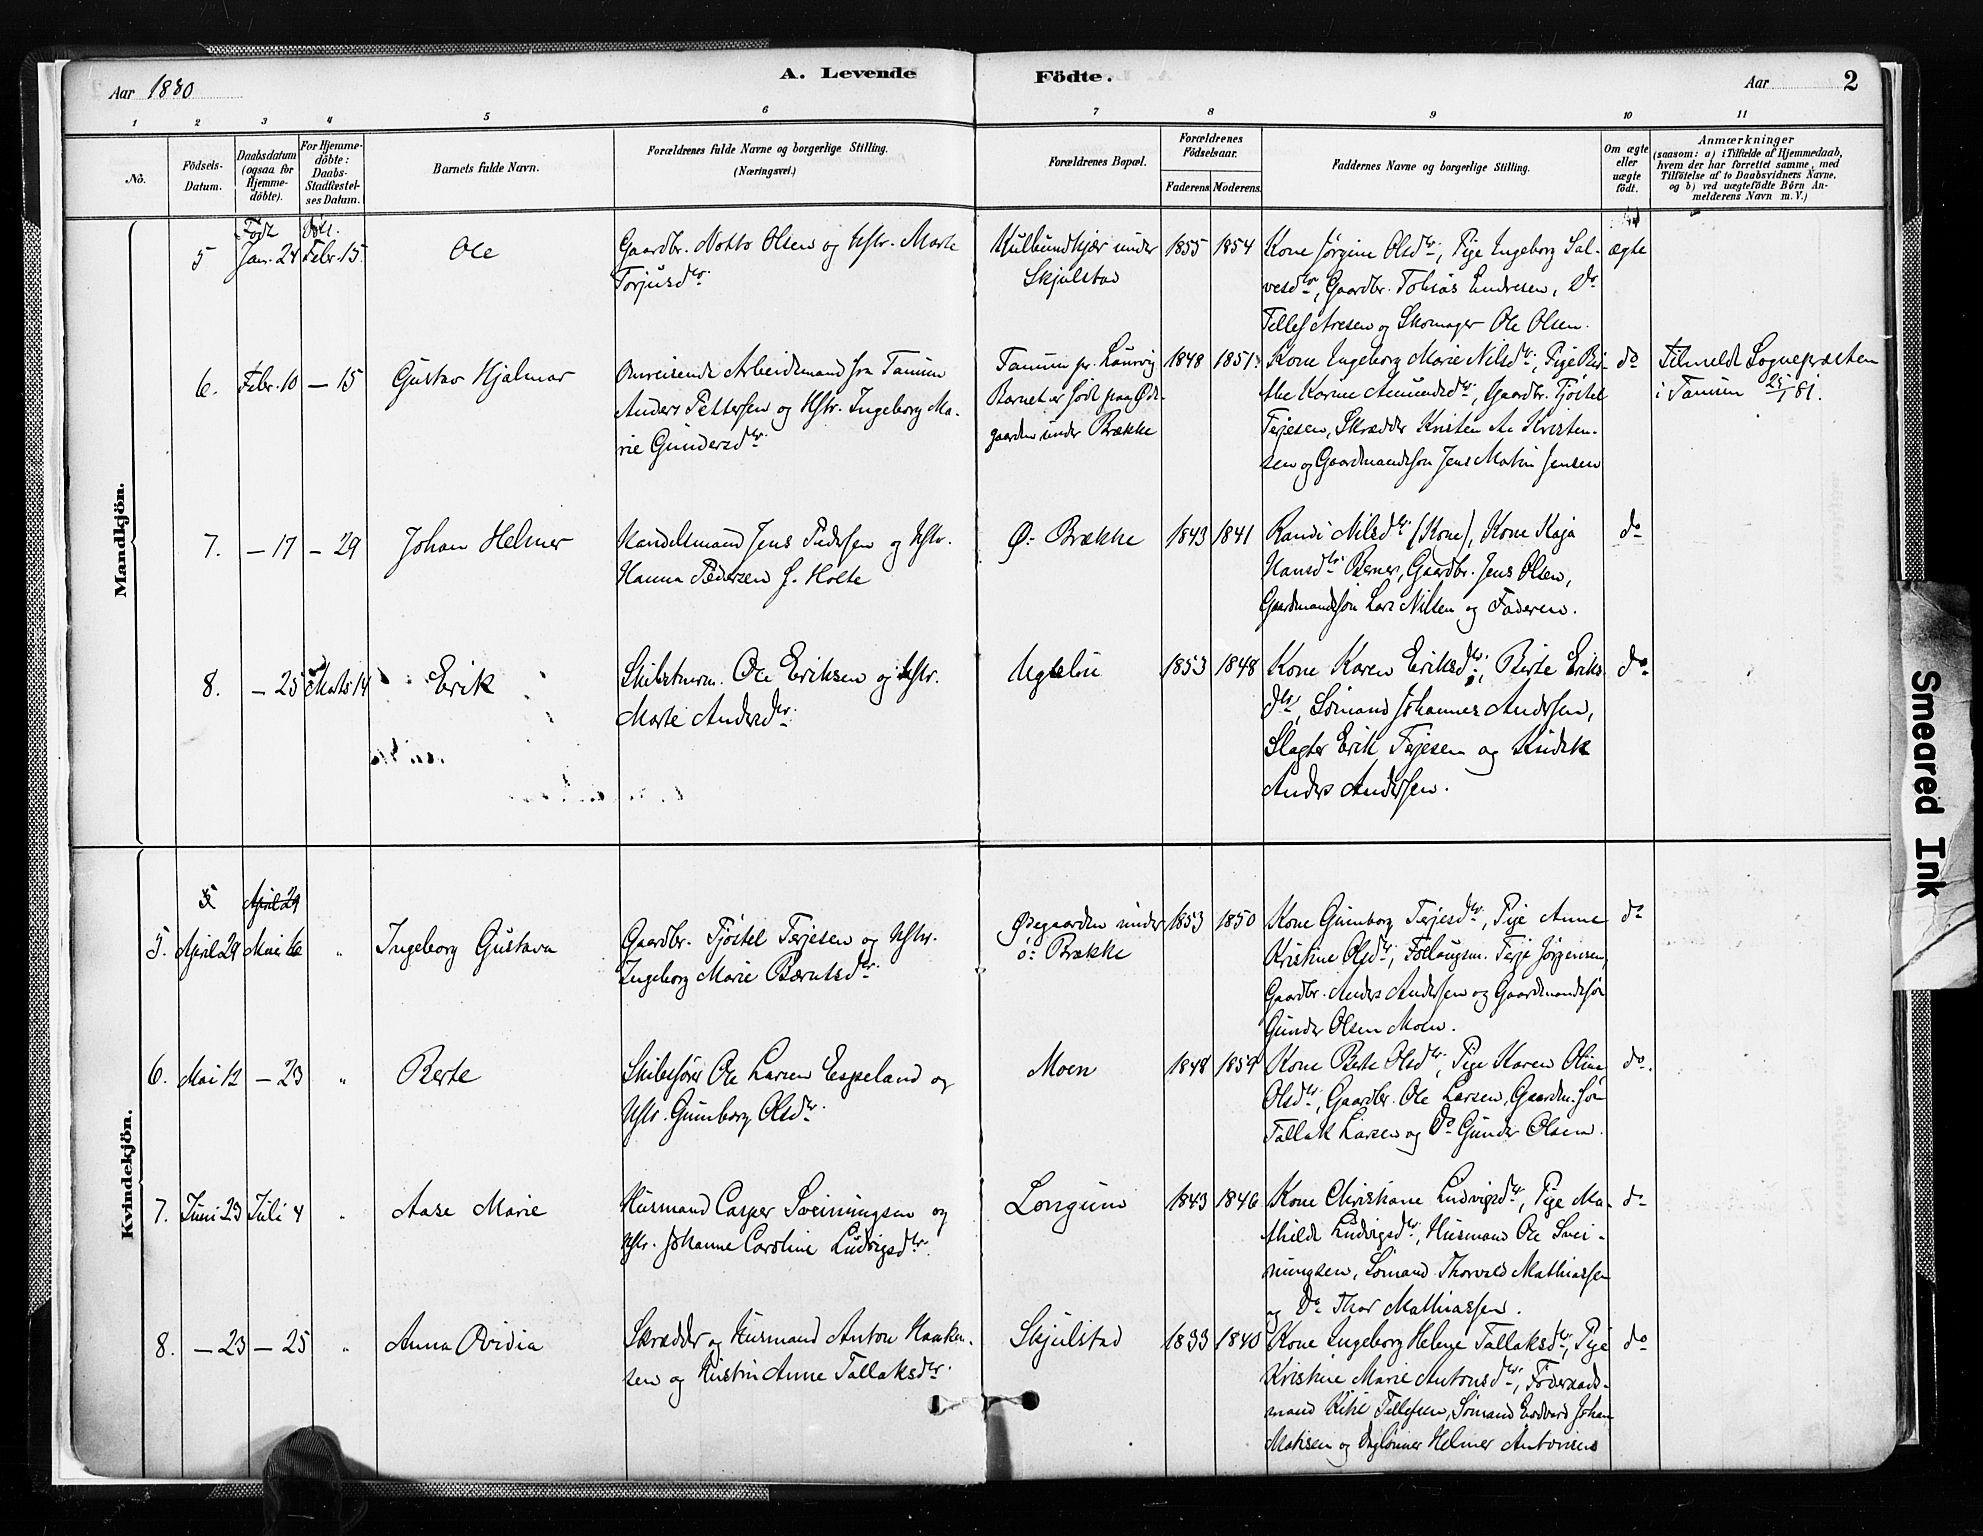 Aar 1880
A. Levende Födte.
Aar 2
1 2 3 4 5 6 7 8 9 10 11
No.
Födsels-
Datum.
Daabsdatum
(ogsaa for
Hjemme-
döbte).
For Hjemme-
döbte:
Daabs-
Stadfæstel-
ses Datum.
Barnets fulde Navn.
Forældrenes fulde Navne og borgerlige Stilling.
(Næringsvei.)
Forældrenes Bopæl.
Forældrenes
Födselsaar.
Faderens. Moderens.
Faddernes Navne og borgerlige Stilling.
Om ægte
eller
uægte
födt.
Anmærkninger
(saasom: a) i Tilfælde af Hjemmedaab,
hvem der har forrettet samme, med
Tilföielse af to Daabsvidners Navne,
og b) ved uægtefödte Börn An-
melderens Navn m. V.)
Mandkjön.
Født Døbt.
5 Jan. 24 Febr. 15 Ole
Gaardbr. Notto Olsen og Hstr. Marte
Torjusdtr.
Kulbundkjær under
Skjulstad
1855 1854
Kone Jørgine Olsdtr., Pige Ingeborg Sal-
vesdtr, Gaardbr. Tobias Endresen, Do
Tellef Aresen og Skomager Ole Olsen.
ægte
6. Febr. 10 — 15 Gustav Hjalmar
Omreisende Arbeidsmand fra Tanum
Anders Pettersen og Hstr. Ingeborg Ma-
rie Gundersdtr.
Tanum pr. Laurvig
Barnet er født paa Øde-
gaarden under Brække
1848 1851
Kone Ingeborg Marie Nilsdtr., Pige Ber-
the Karine Amundsdtr., Gaardbr. Tjøstel
Terjesen, Skrædder Kristen A. Kristen-
sen og Gaardmandssøn Jens Martin Jensen
do
Tilmeldt Sognepræsten
i Tanum 25/1 81.
7. — 17 — 29 Johan Helmer
Handelsmand Jens Pedersen og Hstr.
Hanna Pedersen f. Holte
Ø: Brække
1843 1841
Randi Nilsdtr. (Kone), Kone Kaja
Hansdtr. Berner, Gaardbr. Jens Olsen,
Gaardmandssøn Lars Nilsen og Faderen.
do
8. — 25 Marts 14 Erik
Skibstmrm. Ole Eriksen og Hstr.
Marte Andersdtr.
Uglelu
1853 1848
Kone Karen Eriksdtr., Berte Eriks
dtr., Sømand Johannes Andersen,
Slagter Erik Terjesen og
Anders Andersen.
do
Kvindekjön.
April 29
5. April 29 Mai 16 " Ingeborg Gustava
Gaardbr. Tjøstel Terjesen og Hstr.
Ingeborg Marie Berntsdtr.
Øegaarden under
ø: Brække
1853 1850
Kone Gunborg Terjesdtr., Pige Anne
Kristine Olsdtr., Følaugsm. Terje Jørgensen,
Gaardbr. Anders Andersen og Gaardmandssøn
Gunder Olsen Moen.
do
6. Mai 12 — 23 " Berte
Skibsfører Ole Larsen Espeland og
Hstr. Gunborg Olsdtr.
Moen
1848 1859
Kone Berte Olsdtr., Pige Karen Oline
Olsdtr., Gaardbr. Ole Larsen, Gaardm. søn
Tallak Larsen og Do Gunder Olsen.
do.
7. Juni 23 Juli 4 " Aase Marie
Husmand Casper Sveinungsen og
Hstr. Johanne Caroline Ludvigsdtr.
Longum
1843 1846
Kone Christiane Ludvigsdtr., Pige Ma-
thilde Ludvigsdtr., Husmand Ole Svei-
nungsen, Sømand Thorvald Mathiassen
og Do Thor Mathiassen.
do
8. — 23 — 25 " Anna Ovidia
Skrædder og Husmand Anton Haaken-
sen og Hustru Anne Tallaksdtr.
Skjulstad
1833 1840
Kone Ingeborg Helene Tallaksdtr., Pige
Kristine Marie Antonsdtr., Føderaads-
mand Tellefsen, Sømand Edvard Johan
Madsen og Daglønner Helmer Antonsen
do
Smeared Ink